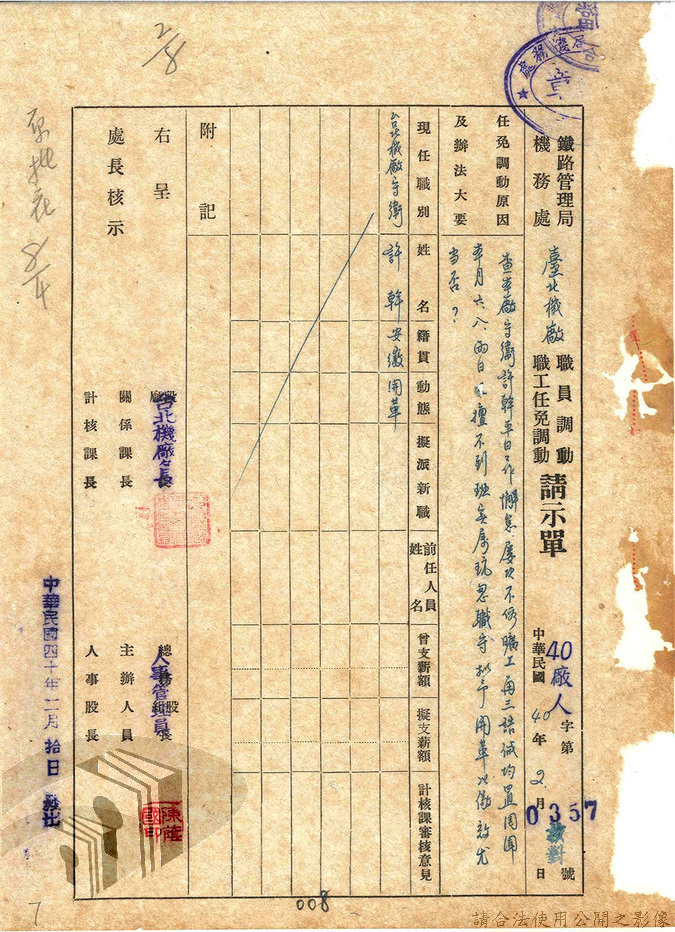 鐵路管理局
機務處
臺北機廠
職員調動
職工任免調動
請示單
中華民國40年2月 日
40廠人字第0357號
校對
任免調動原因
及辦法大要
查本廠守衛許幹平日工作懈怠屢次不假曠工再三誥誡均置罔聞
本月六八、兩日又擅不到班實屬玩忽職守擬予開革以儆效尤
當否?
現任職別
姓名
籍貫
動態
擬派新職
前任人員
姓名
曾支薪額
擬支薪額
計核課審核意見
台北機廠守衛
許幹
安徽
開革
附記
右呈
處長核示
台北機廠長
關係課長
計核課長
總務組股長
人事管理員
主辦人員
人事股長
中華民國四十年二月拾日發出
處務機
2/8
008
7
請合法使用公開之影像